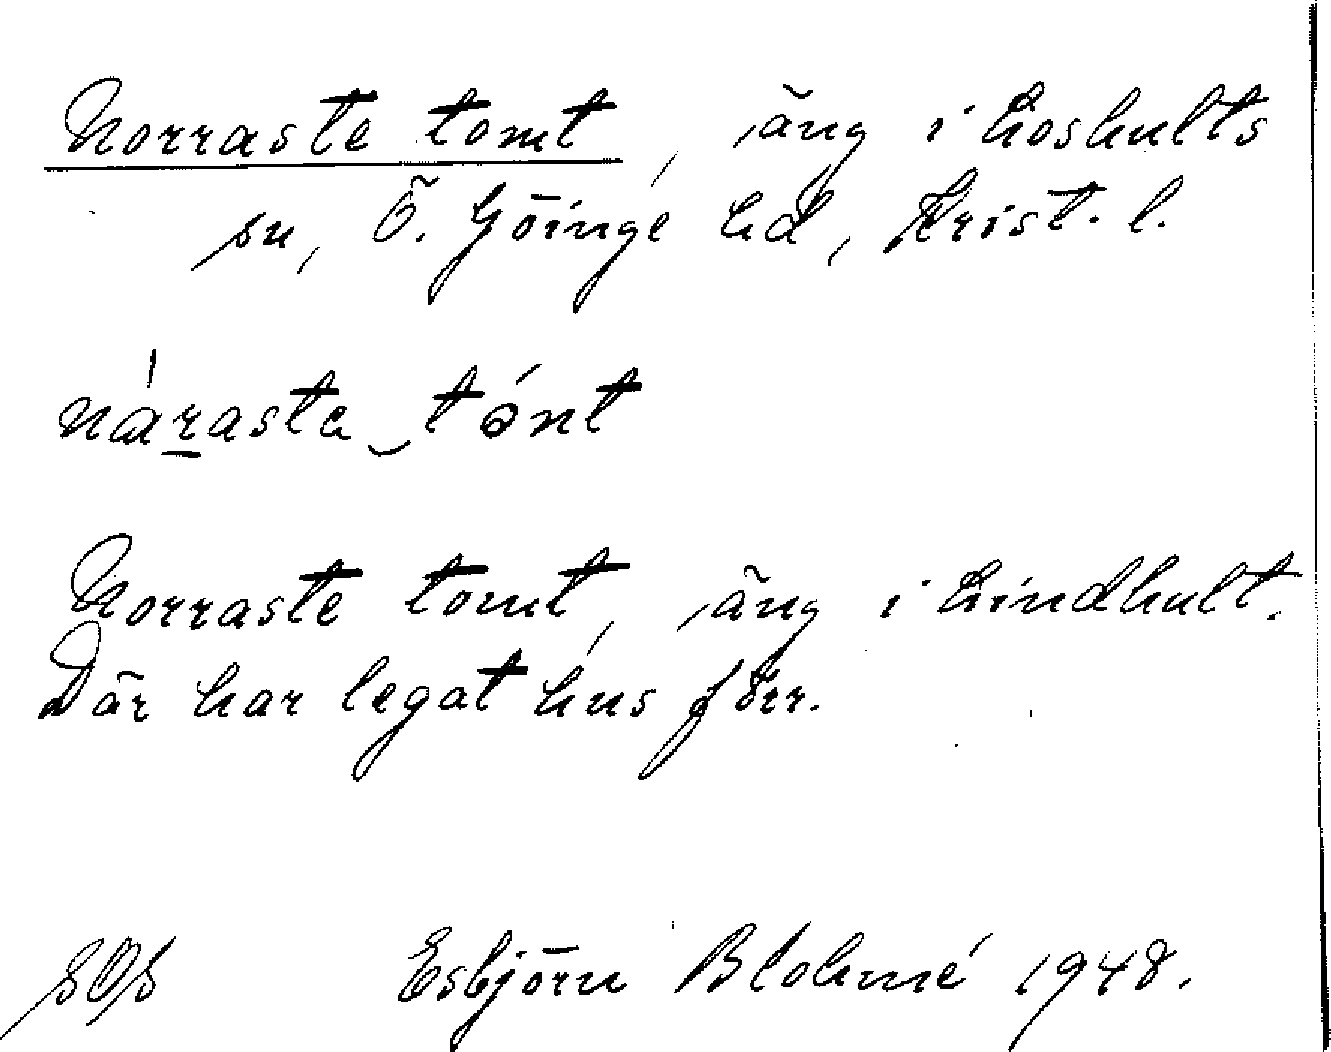 Norraste tomt, äng i Loshults
sn, Ö. Göinge hd, Krist. l.
náraste tónt
Norraste tomt, äng i Lindhult.
Där har legat hus förr.
SOS Esbjörn Blohmé 1948.